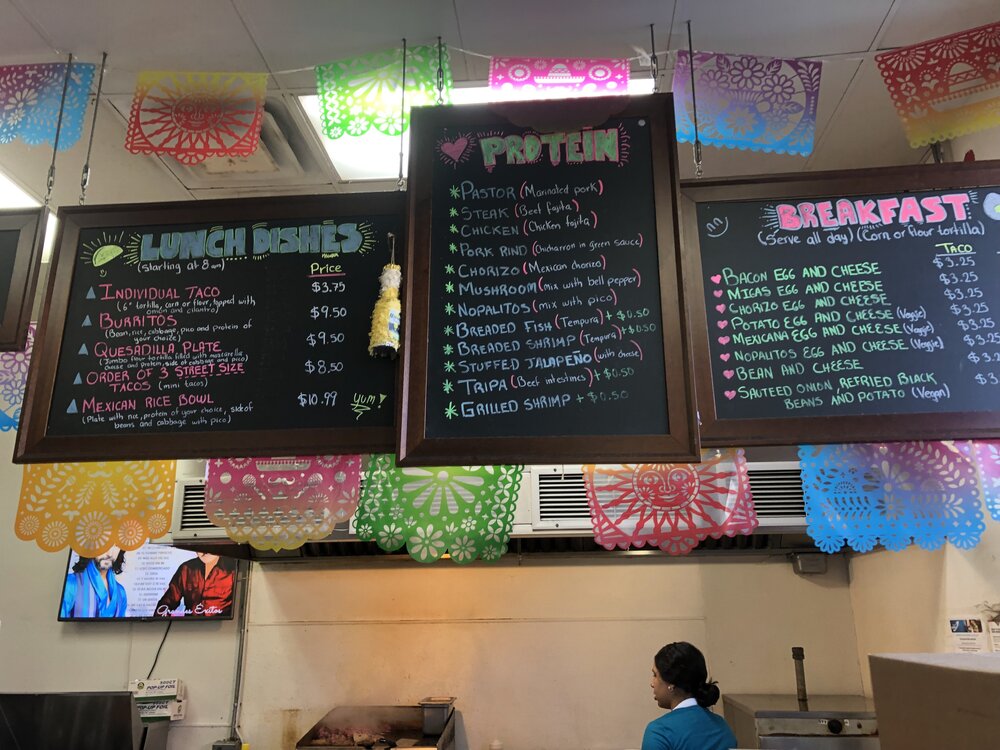 LUNCH DISHES
(starting at 8am)
Price
INDIVIDUAL TACO $3.75
(6" tortilla, corn or flour, topped with
onion and cilantro)
BURRITOS $9.50
(Bean, rice, cabbage, pico and protein of
your choice)
QUESADILLA PLATE $9.50
(Jumbo flour tortilla filled with mozzarella
cheese and protein, side of cabbage and pico)
ORDER OF 3 STREET SIZE $8.50
TACOS (mini tacos)
MEXICAN RICE BOWL $10.99
(Plate with rice, protein of your choice, side of
beans and cabbage with pico)
Yum!
PROTEIN
PASTOR (Marinated pork)
STEAK (Beef fajita)
CHICKEN (Chicken fajita)
PORK RIND (Chicharron in green sauce)
CHORIZO (Mexican chorizo)
MUSHROOM (mix with bell pepper)
NOPALITOS (mix with pico)
BREADED FISH (Tempura) + $0.50
BREADED SHRIMP (Tempura) + $0.50
STUFFED JALAPEÑO (with cheese)
TRIPA (Beef intestines) + $0.50
GRILLED SHRIMP + $0.50
BREAKFAST
(Serve all day) (Corn or flour tortilla)
TACO
BACON EGG AND CHEESE $3.25
MIGAS EGG AND CHEESE $3.25
CHORIZO EGG AND CHEESE $3.25
POTATO EGG AND CHEESE (Veggie) $3.25
MEXICANA EGG AND CHEESE (Veggie) $3.25
NOPALITOS EGG AND CHEESE (Veggie) $3.25
BEAN AND CHEESE
SAUTEED ONION, REFRIED BLACK
BEANS AND POTATO (Vegan)
Grandes Exitos
POP-UP FOIL